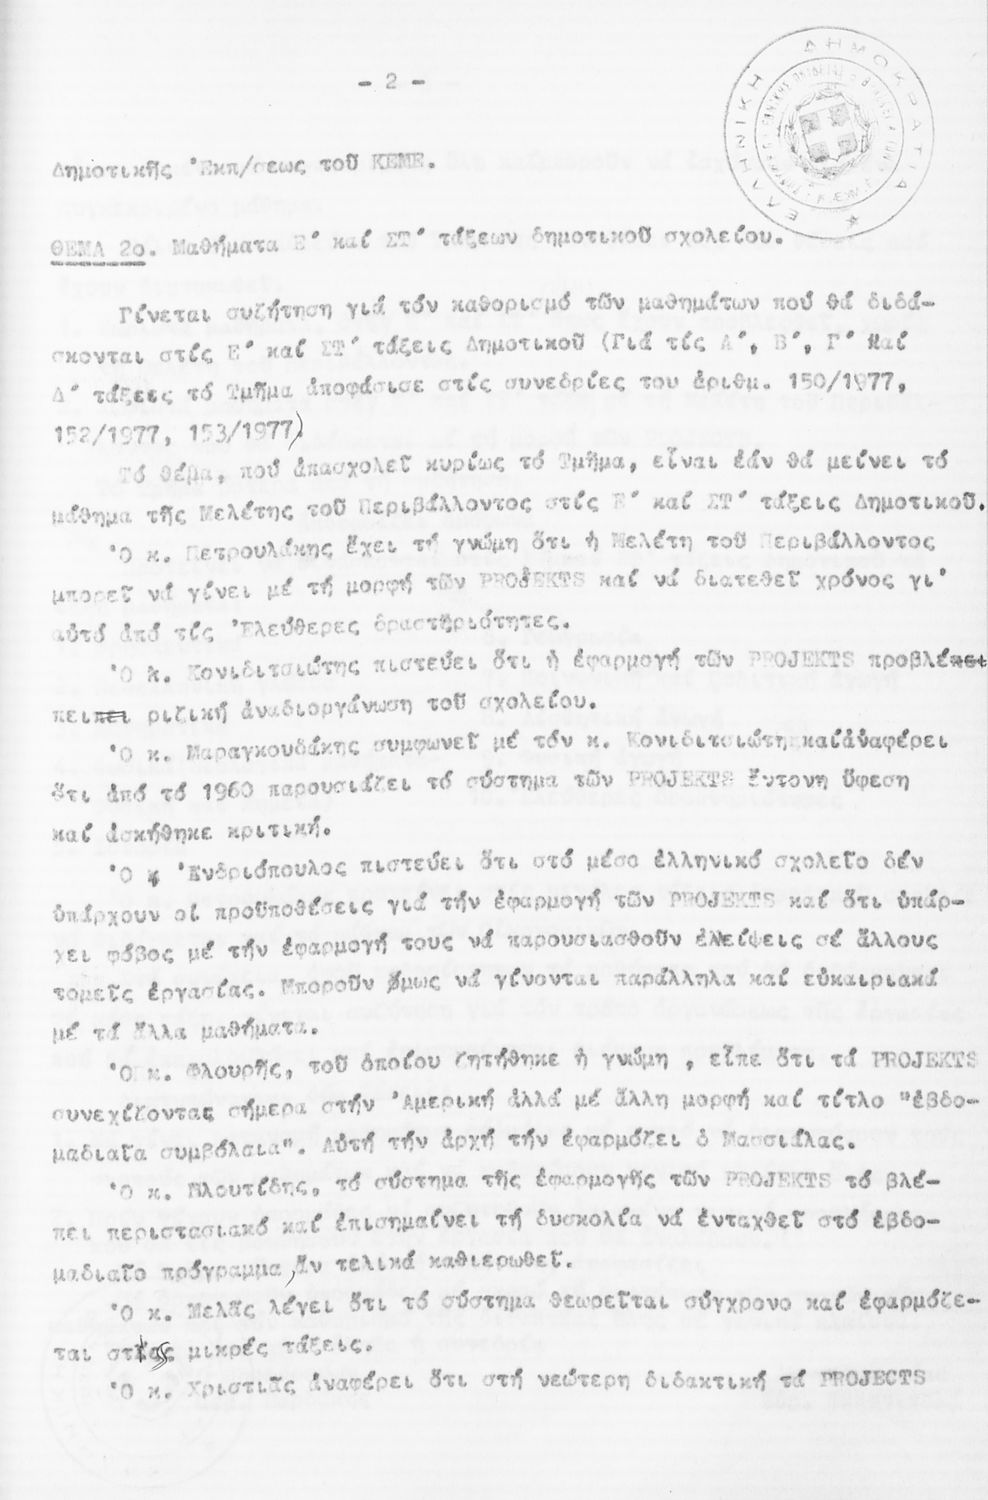 - 2 -
ΕΛΛΗΝΙΚΗ ΔΗΜΟΚΡΑΤΙΑ
Δημοτικῆς Ἐκπ/σεως τοῦ ΚΕΜΕ.
ΘΕΜΑ 2ο. Μαθήματα Ε΄ καί ΣΤ΄ τάξεων δημοτικοῦ σχολείου.
Γίνεται συζήτηση γιά τόν καθορισμό τῶν μαθημάτων πού θά διδά-
σκονται στίς Ε΄ καί ΣΤ΄ τάξεις Δημοτικοῦ (Γιά τίς Α΄, Β΄, Γ΄ καί
Δ΄ τάξεις τό Τμῆμα ἀποφάσισε στίς συνεδρίες του ἀριθμ. 150/1977,
152/1977, 153/1977).
Τό θέμα, πού ἀπασχολεῖ κυρίως τό Τμῆμα, εἶναι ἐάν θά μείνει τό
μάθημα τῆς Μελέτης τοῦ Περιβάλλοντος στίς Ε΄ καί ΣΤ΄ τάξεις Δημοτικοῦ.
Ὁ κ. Πετρουλάκης ἔχει τή γνώμη ὅτι ἡ Μελέτη τοῦ Περιβάλλοντος
μπορεῖ νά γίνει μέ τή μορφή τῶν PROJEKTS καί νά διατεθεῖ χρόνος γι'
αὐτό ἀπό τίς Ἐλεύθερες δραστηριότητες.
Ὁ κ. Κονιδιτσιώτης πιστεύει ὅτι ἡ ἐφαρμογή τῶν PROJEKTS προβλέπει
πειπει ριζική ἀναδιοργάνωση τοῦ σχολείου.
Ὁ κ. Μαραγκουδάκης συμφωνεῖ μέ τόν κ. Κονιδιτσιώτη καίἀναφέρει
ὅτι ἀπό τό 1960 παρουσιάζει τό σύστημα τῶν PROJEKTS ἔντονη ὕφεση
καί ἀσκήθηκε κριτική.
Ὁ κ Ἐνδριόπουλος πιστεύει ὅτι στό μέσο ἑλληνικό σχολεῖο δέν
ὑπάρχουν οἱ προϋποθέσεις γιά τήν ἐφαρμογή τῶν PROJEKTS καί ὅτι ὑπάρ-
χει φόβος μέ τήν ἐφαρμογή τους νά παρουσιασθοῦν ἐλλείψεις σέ ἄλλους
τομεῖς ἐργασίας. Μποροῦν ὅμως νά γίνονται παράλληλα καί εὐκαιριακά
μέ τά ἄλλα μαθήματα.
Ὁ κ. Φλουρῆς, τοῦ ὁποίου ζητήθηκε ἡ γνώμη , εἶπε ὅτι τά PROJEKTS
συνεχίζονται σήμερα στήν Ἀμερική ἀλλά μέ ἄλλη μορφή καί τίτλο "ἑβδο-
μαδιαῖα συμβόλαια". Αὐτή τήν ἀρχή τήν ἐφαρμόζει ὁ Μασσιάλας.
Ὁ κ. Πλουτίδης, τό σύστημα τῆς ἐφαρμογῆς τῶν PROJEKTS τό βλέ-
πει περιστασιακό καί ἐπισημαίνει τή δυσκολία νά ἐνταχθεῖ στό ἑβδο-
μαδιαῖο πρόγραμμα, ἄν τελικά καθιερωθεῖ.
Ὁ κ. Μελᾶς λέγει ὅτι τό σύστημα θεωρεῖται σύγχρονο καί ἐφαρμόζε-
ται στίς μικρές τάξεις.
Ὁ κ. Χριστιᾶς ἀναφέρει ὅτι στή νεώτερη διδακτική τά PROJECTS